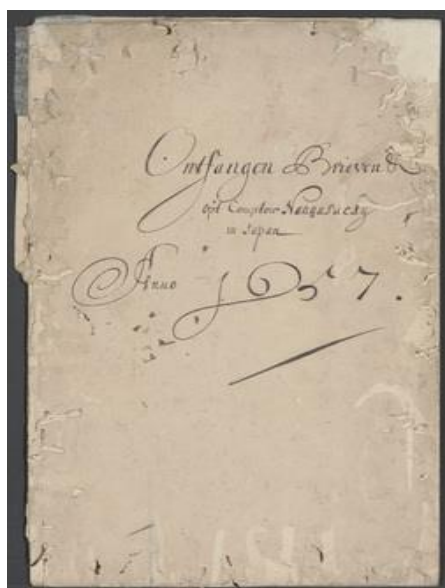 Ontfangen Brieven &
opt Comptoir Nangasacqy
in Japan
Anno 1657.